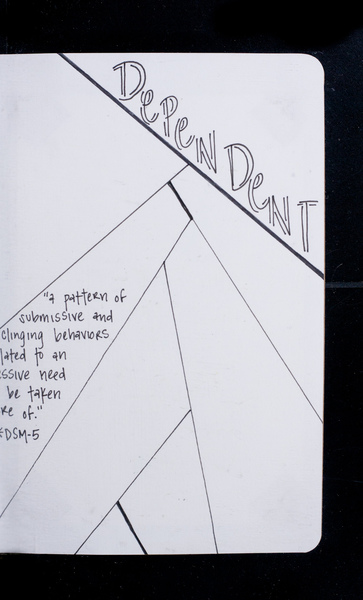 DEPENDENT
"a pattern of
submissive and
clinging behaviors
lated to an
ssive need
be taken
re of."
DSM-5